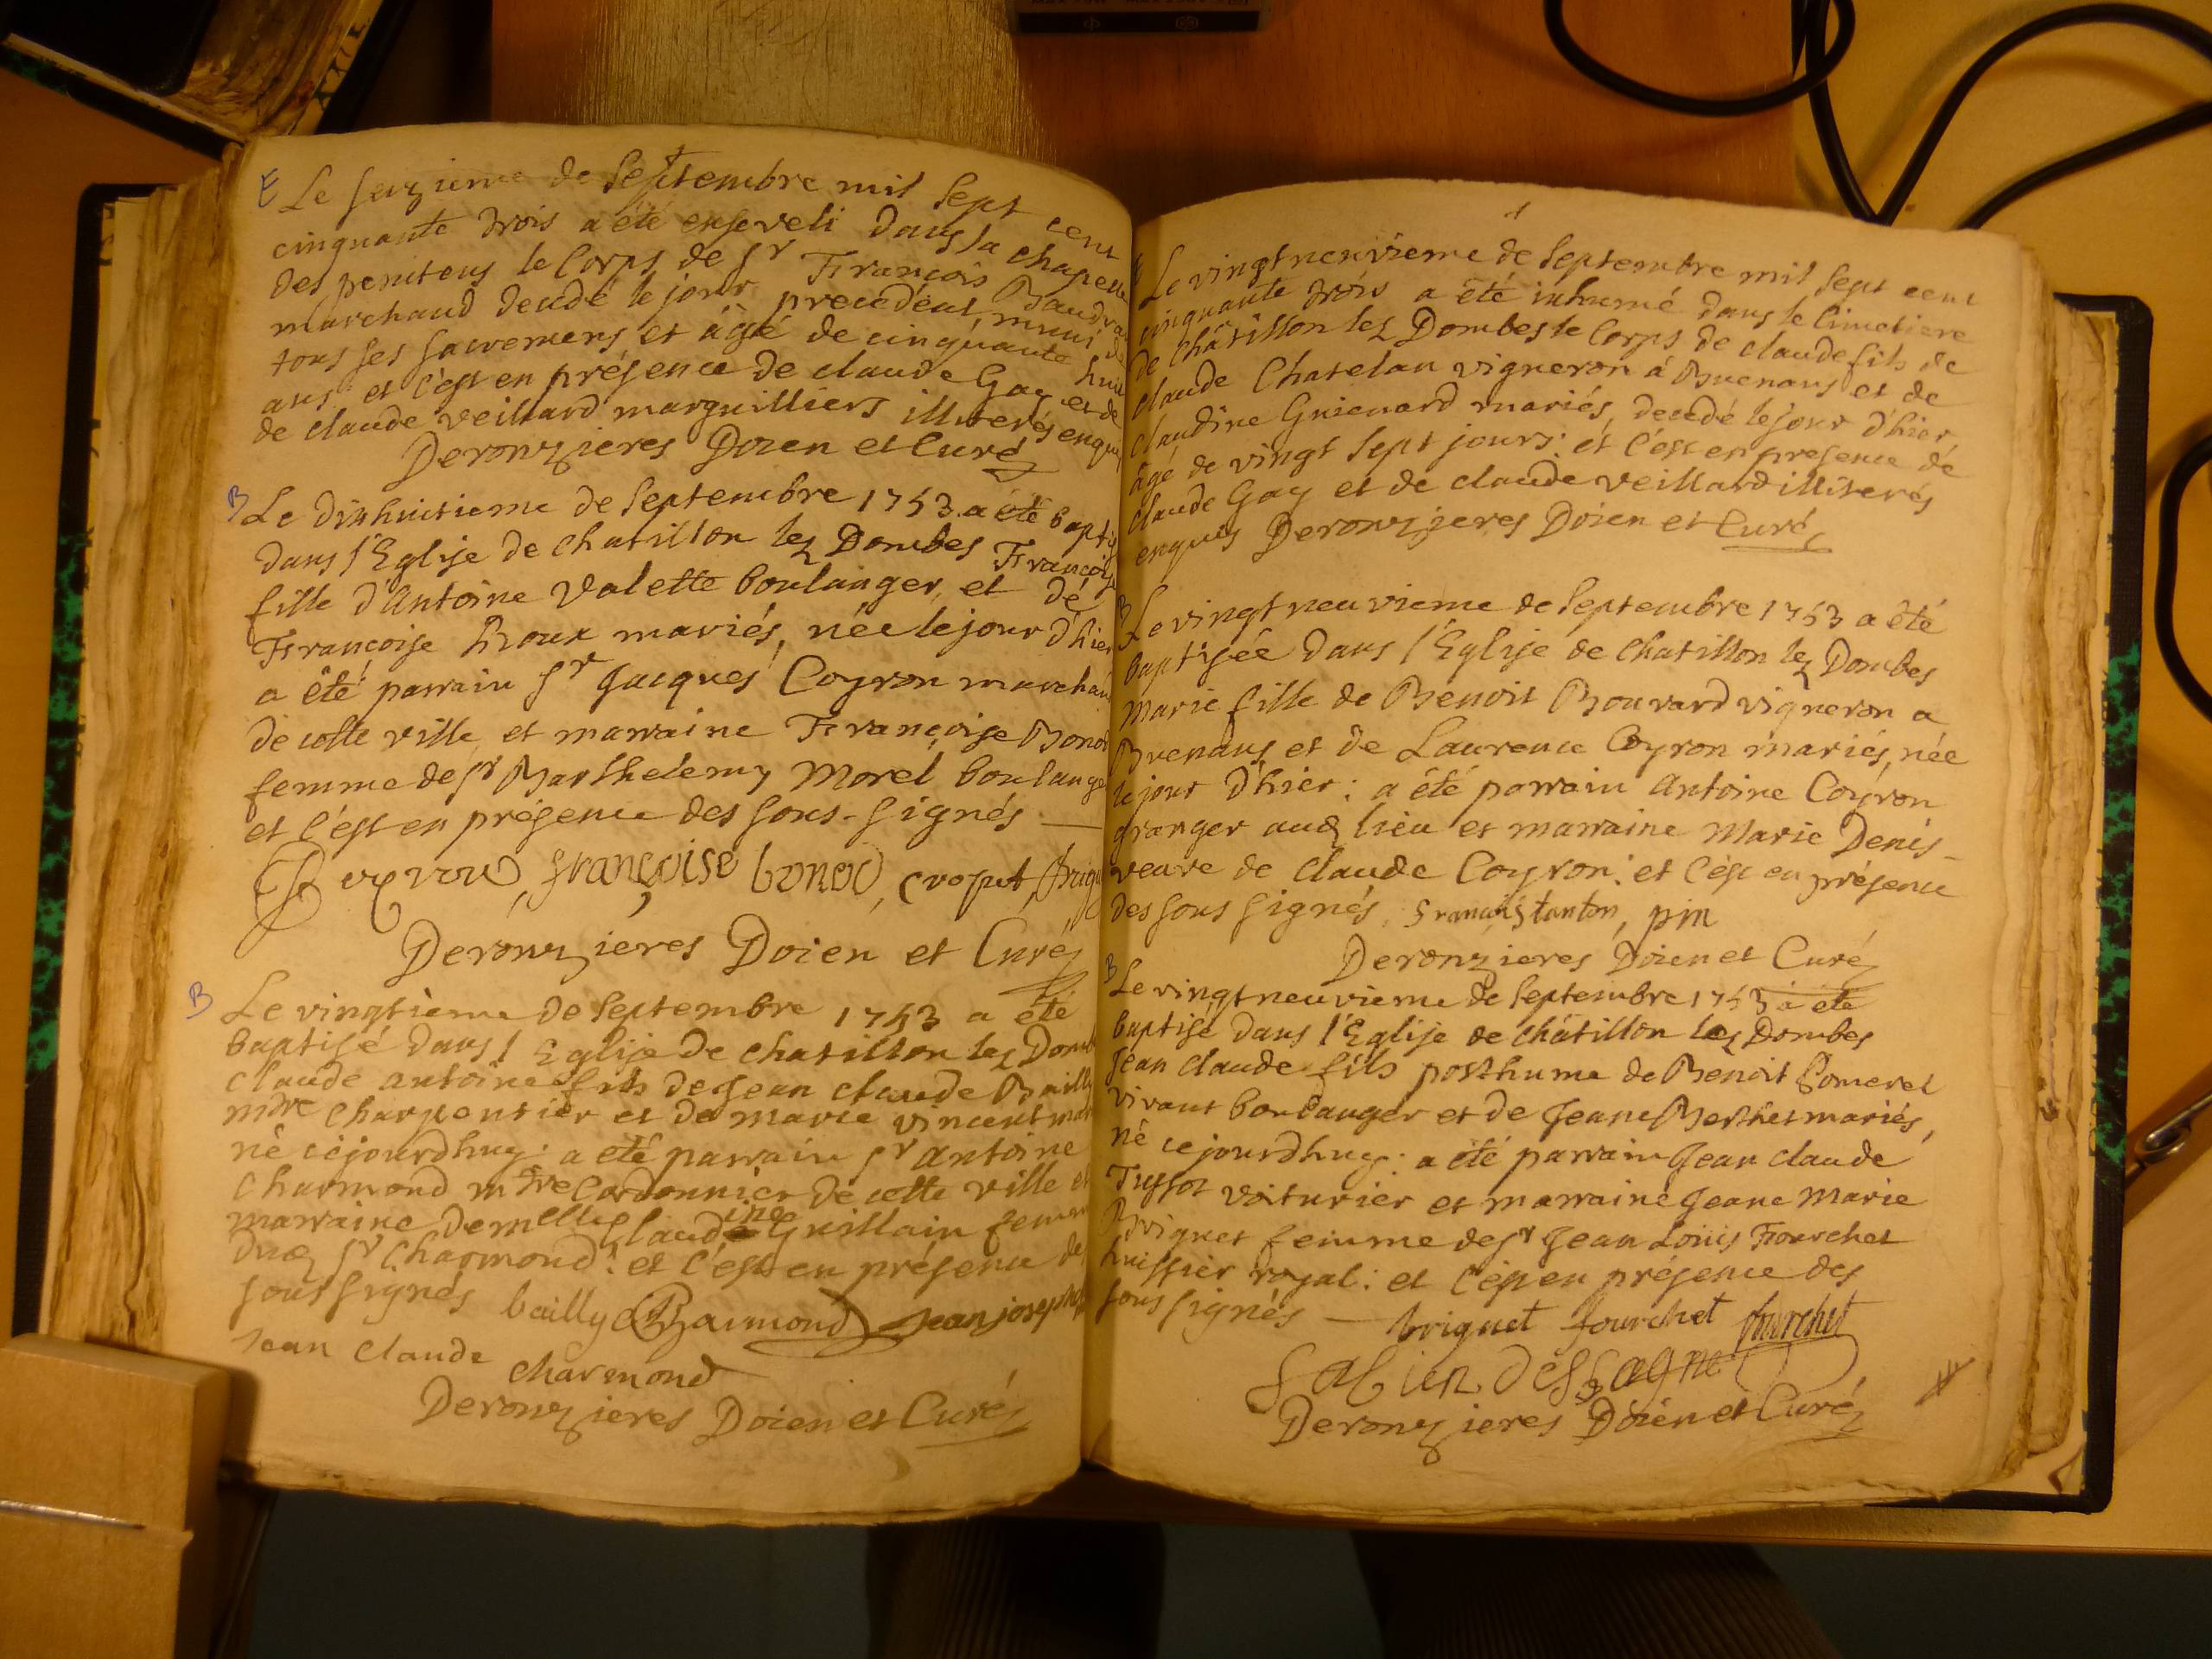 E Le seizieme de Septembre mil Sept cent
cinquante trois a été enseveli dans la chapelle
des penitens le Corps de Sr François
marchand decedé le jour precedent, muni de
tous ses sacremens et âgé de cinquante huit
ans: et c'est en présence de claude Gay et de
de claude veillard marguilliers illiterés enquis
Deronzieres Doien et Curé
B Le dixhuitieme de Septembre 1753 a été bapti
dans l'Eglise de chatillon lez Dombes Francoise
fille d'Antoine Valette boulanger, et de
Francoise Roux mariés, née le jour d'hier
a été parrain Sr Jacques Coyron marchan
de cette ville et marraine Françoise Bonod
femme de Sr Barthelemy Morel boulange
et c'est en présence des sous-signés
françoise bonod, croput,
Deronzieres Doien et Curé
B Le vingtieme de Septembre 1753 a été
baptisé dans l'Eglise de chatillon lez Domb
claude antoine fils de Jean claude Bailly
mdre charpentier et de marie vincent mar
né cejourdhuy: a été parrain Sr antoine
Charmond mtre Cordonnier de cette ville et
marraine demelle Claudine Guillain femme
dud Sr Charmond: et c'est en présence de
sous signés bailly Charmond Jean joseph
Jean Claude
charmond
Deronzieres Doien et Curé
1
E Le vingtneuvieme de Septembre mil Sept cent
cinquante trois a été inhumé dans le Cimetiere
de Châtillon lez Dombes le Corps de claude fils de
claude Chatelan vigneron à Buenans et de
claudine Guienard mariés, decedé le jour d'hier
âgé de vingt Sept jours: et c'est en presence de
claude Gay et de claude veillard illiterés
enquis Deronzieres Doien et Curé
B Le vingtneuvieme de Septembre 1753 a été
baptisée dans l'Eglise de Chatillon lez Dombes
Marie fille de Benoit Bouvard vigneron a
Buenans, et de Laurence Coyron mariés, née
le jour d'hier: a été parrain Antoine Coyron
granger aud lieu et marraine Marie Denis
veuve de Claude Coyron: et c'est en présence
des sous signés, pin
Deronzieres Doien et Curé
B Le vingtneuvieme de Septembre 1753 a été
baptisé dans l'Eglise de châtillon lez Dombes
Jean Claude fils posthume de Benoit Pomerel
vivant boulanger et de Jeane Berthet mariés,
né cejourdhuy: a été parrain Jean claude
Tissot voiturier et marraine Jeane Marie
Briguet femme de Sr Jean Louis Fourchet
huissier royal: et c'est en présence des
sous signés briguet fourchet fourchet
Deronzieres Doien et Curé